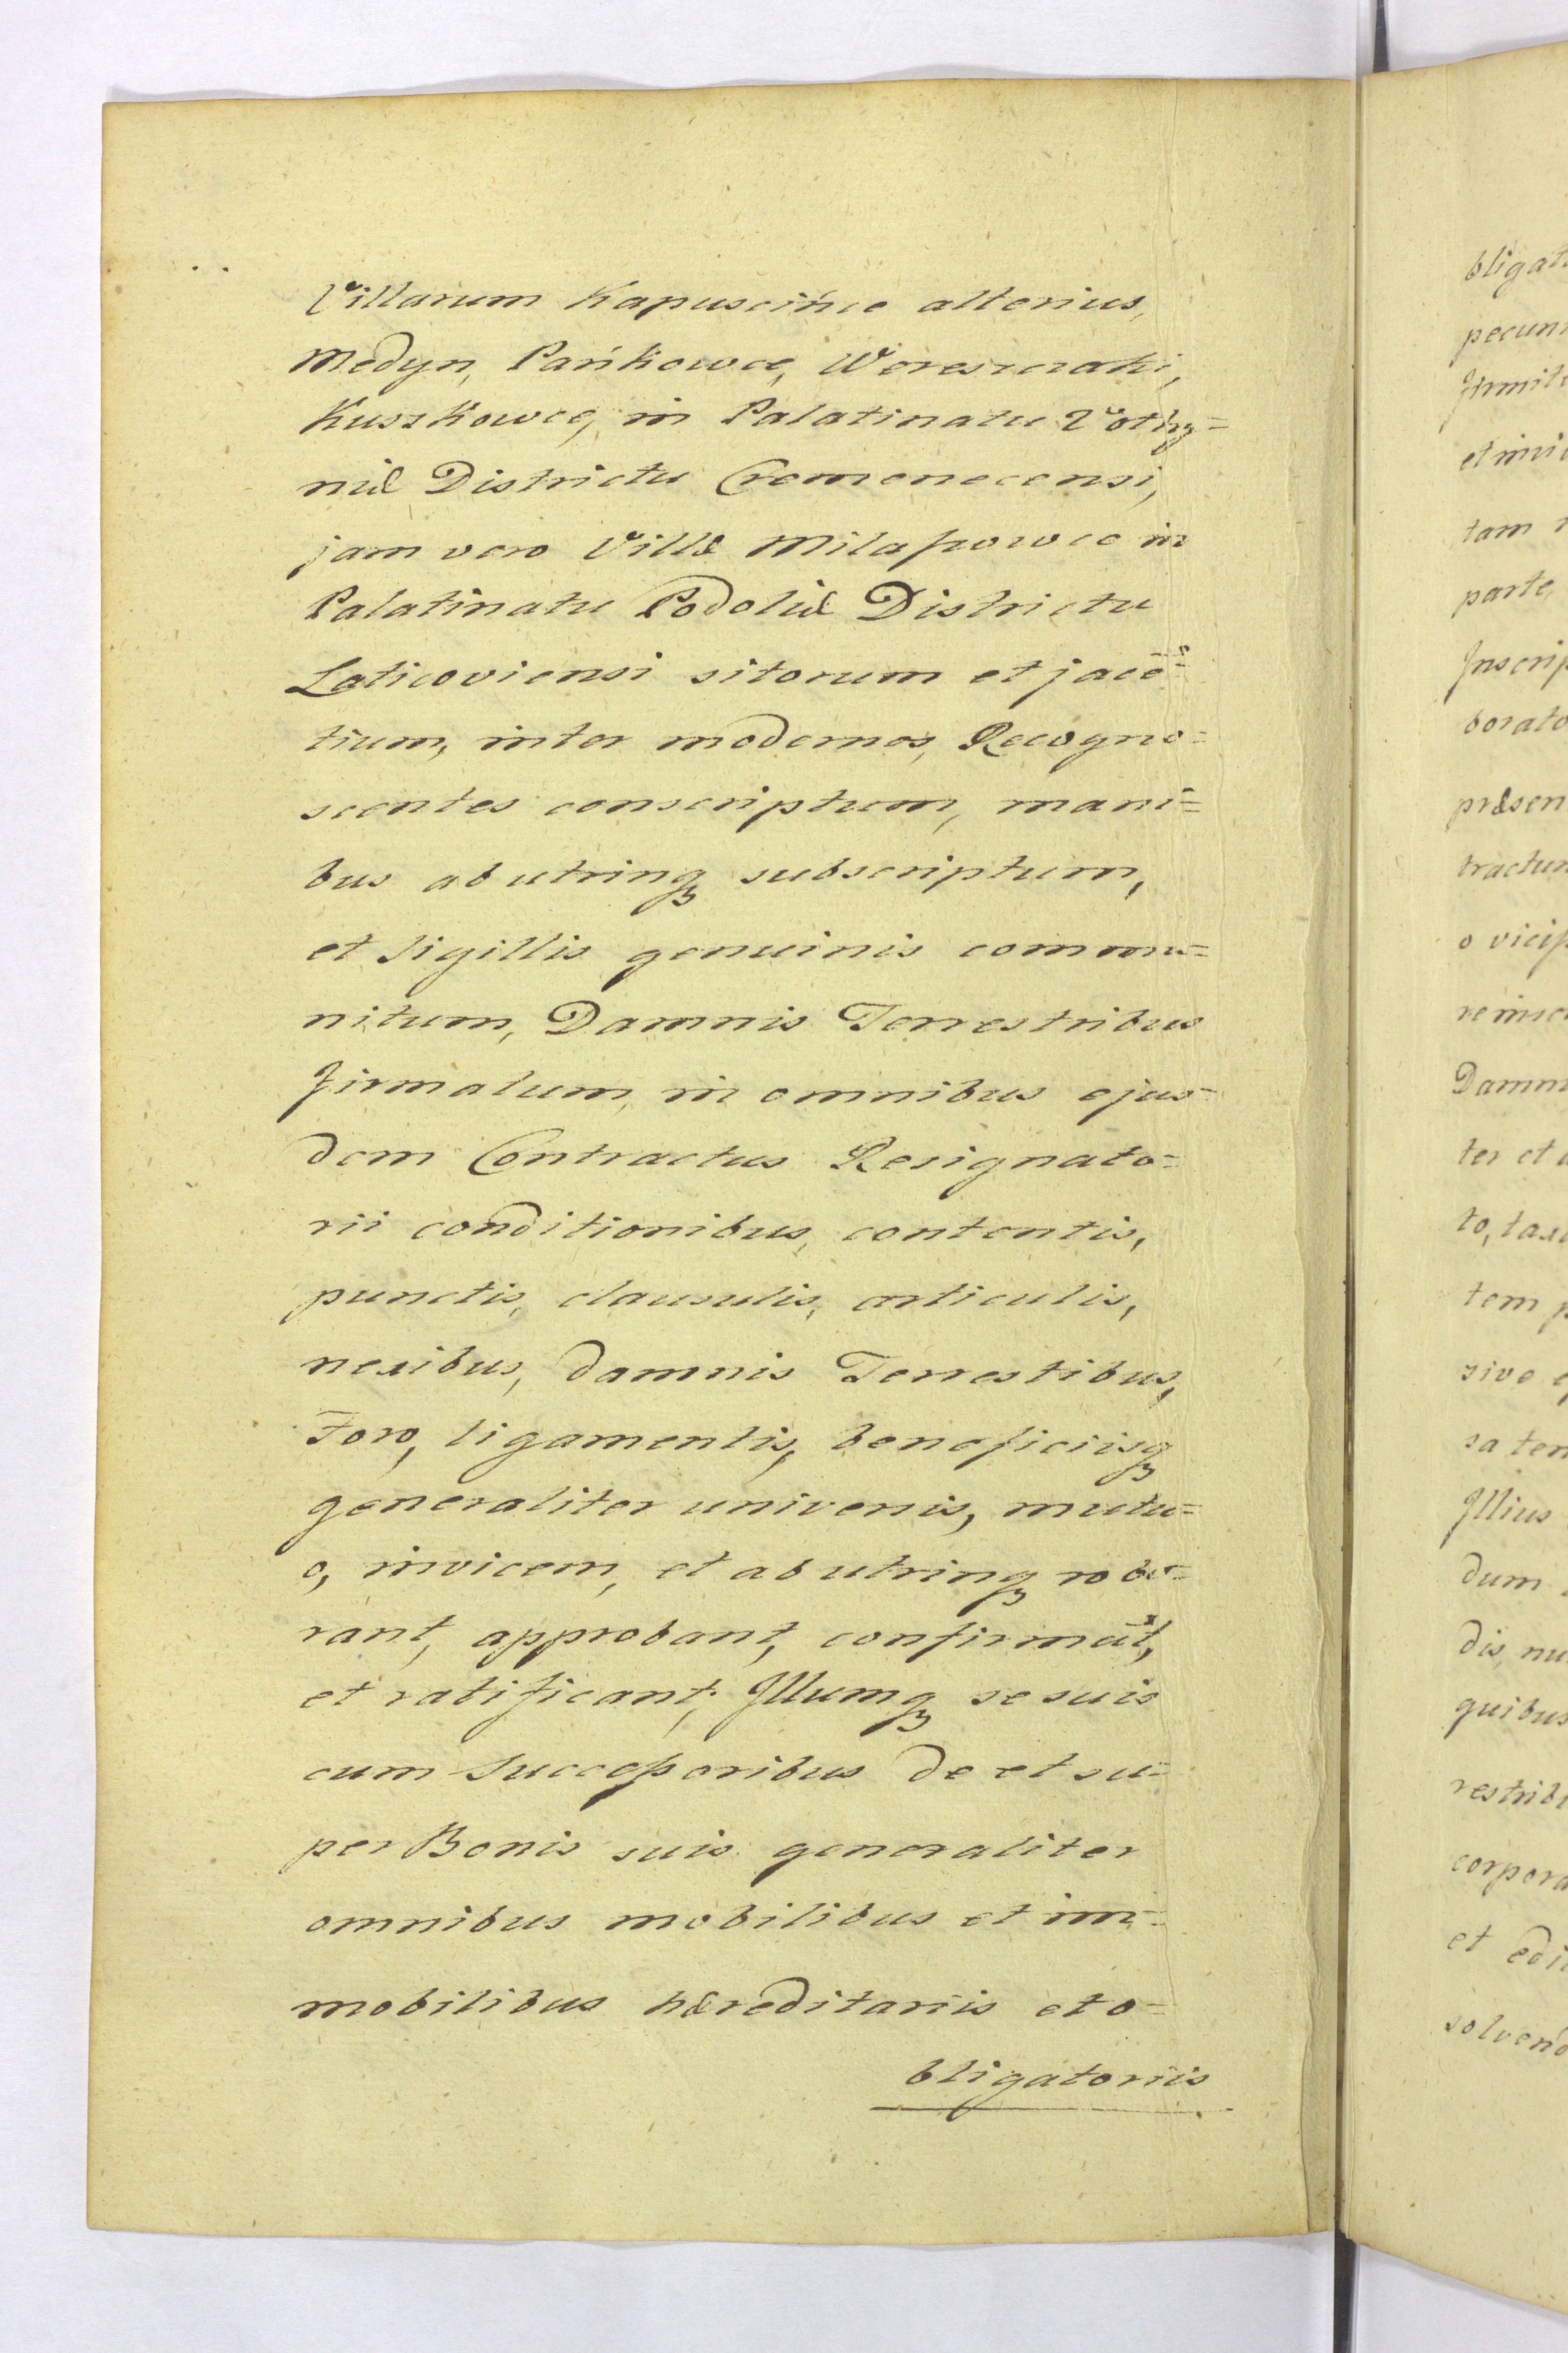 Villarum Kapuscińce alterius,
Medyn, Pańkowce, Woreszczaki,
Kuszkowce, in Palatinatu Volhy=
niæ Districtu Cremenecensi,
jam vero Villæ Milaszowce in
Palatinatu Podoliæ Districtu
Laticoviensi sitorum et jacē=
tium, inter modernos, Recogno=
scentes conscriptum, mani=
bus ab utrinqꝫ subscriptum,
et sigillis genuinis commu=
nitum, Damnis Terrestribus
firmatum, in omnibus ejus=
dem Contractus Resignato=
rii conditionibus, contentis,
punctis, clausulis, articulis,
nexibus, damnis Terrestibus,
Foro, ligamentis, beneficiisqꝫ
generaliter univenis, mutu=
o, invicem, et ab utrinqꝫ robo=
rant, approbant, confirmāt,
et ratificant, Illumqꝫ se suis
cum Successoribus de et su=
per Bonis suis generaliter
omnibus mobilibus et im=
mobilibus hæreditariis et o=
bligatoriis
bligat
pecun
firmit
et invi
tam
parte,
Inscrip
borato
præsen
tractum
o vicis
Damni
ter et
to, tax
tem p
sive
sa ten
Illius
dum
dis, nu
quibus
restrib
corpora
et edi
solvend